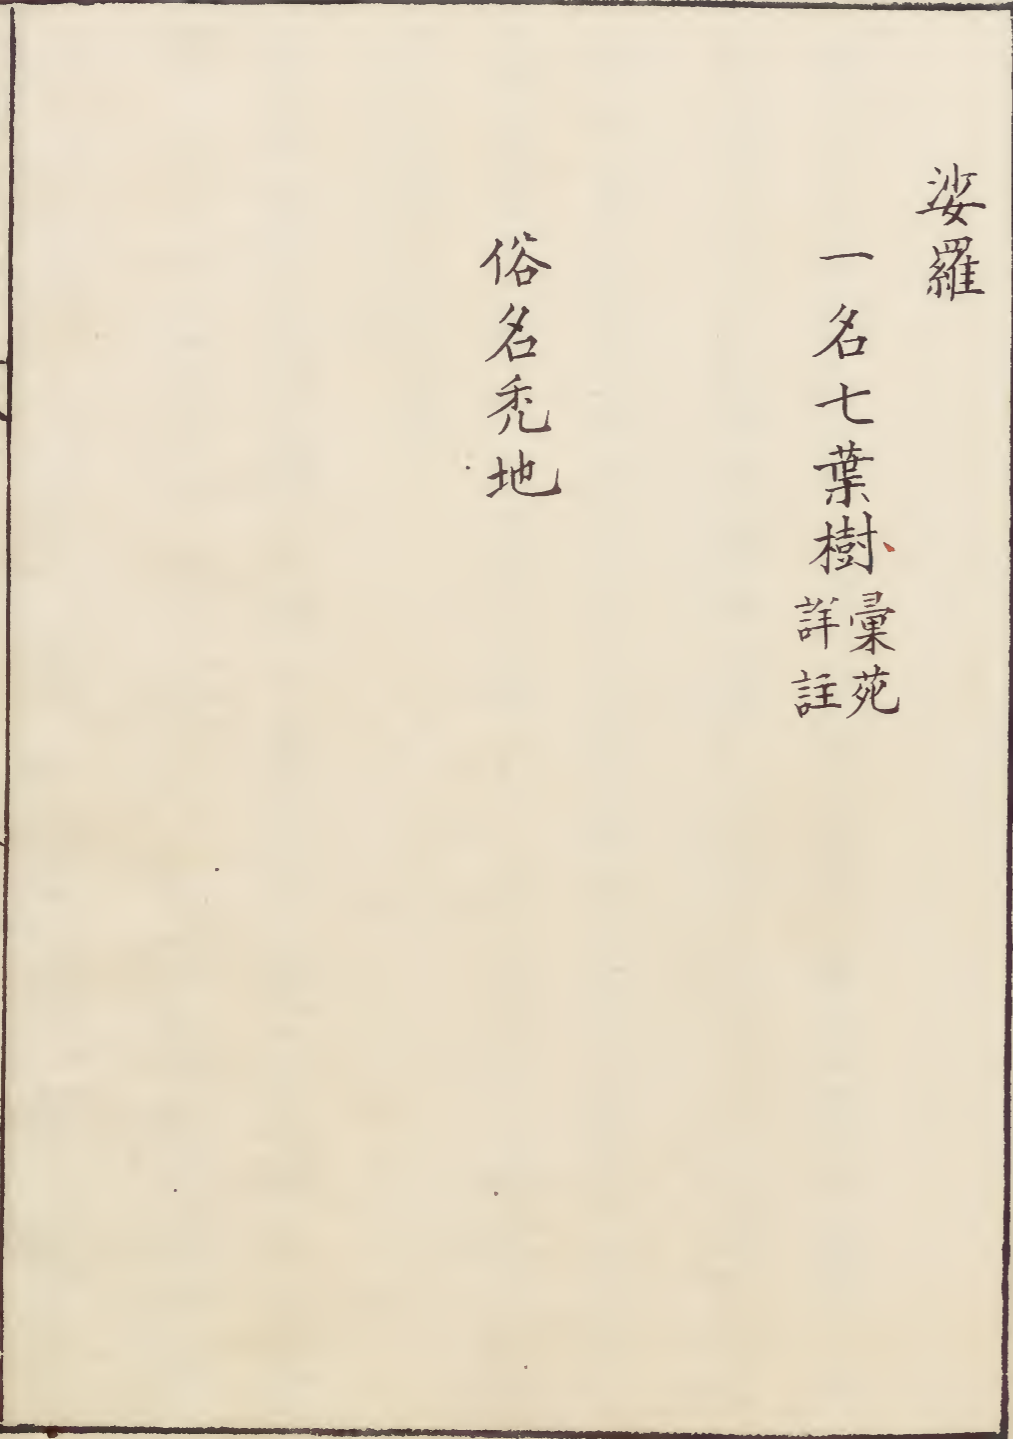 娑羅
一名七葉樹彙苑詳註
俗名禿地